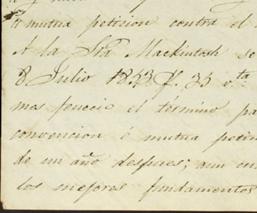 mutua peticion contra el
A la Sra Mackintosh se
8 Julio 1853 f. 33 v.ta
mos fenecio el término pa
convencion é mutua petic
de un año despues; aun cu
los mejores fundamentos